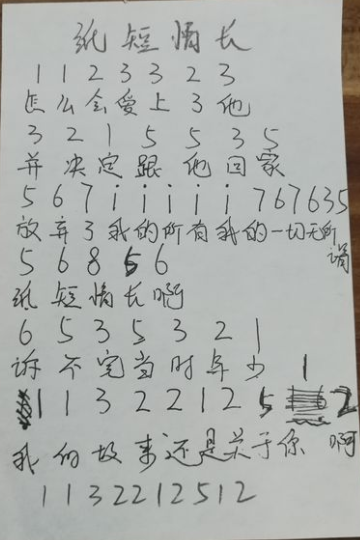 纸短情长
1 1 2 3 3 2 3
怎么会爱上了他
3 2 1 5 5 3 5
并决定跟他回家
5 6 7 i i i i i 7 6 7 6 3 5
放弃了我的所有我的一切无所谓
5 6 8 5 6
纸短情长啊
6 5 3 5 3 2 1
诉不完当时年少 1
1 1 3 2 2 1 2 5 2
我的故事还是关于你啊
1 1 3 2 2 1 2 5 1 2